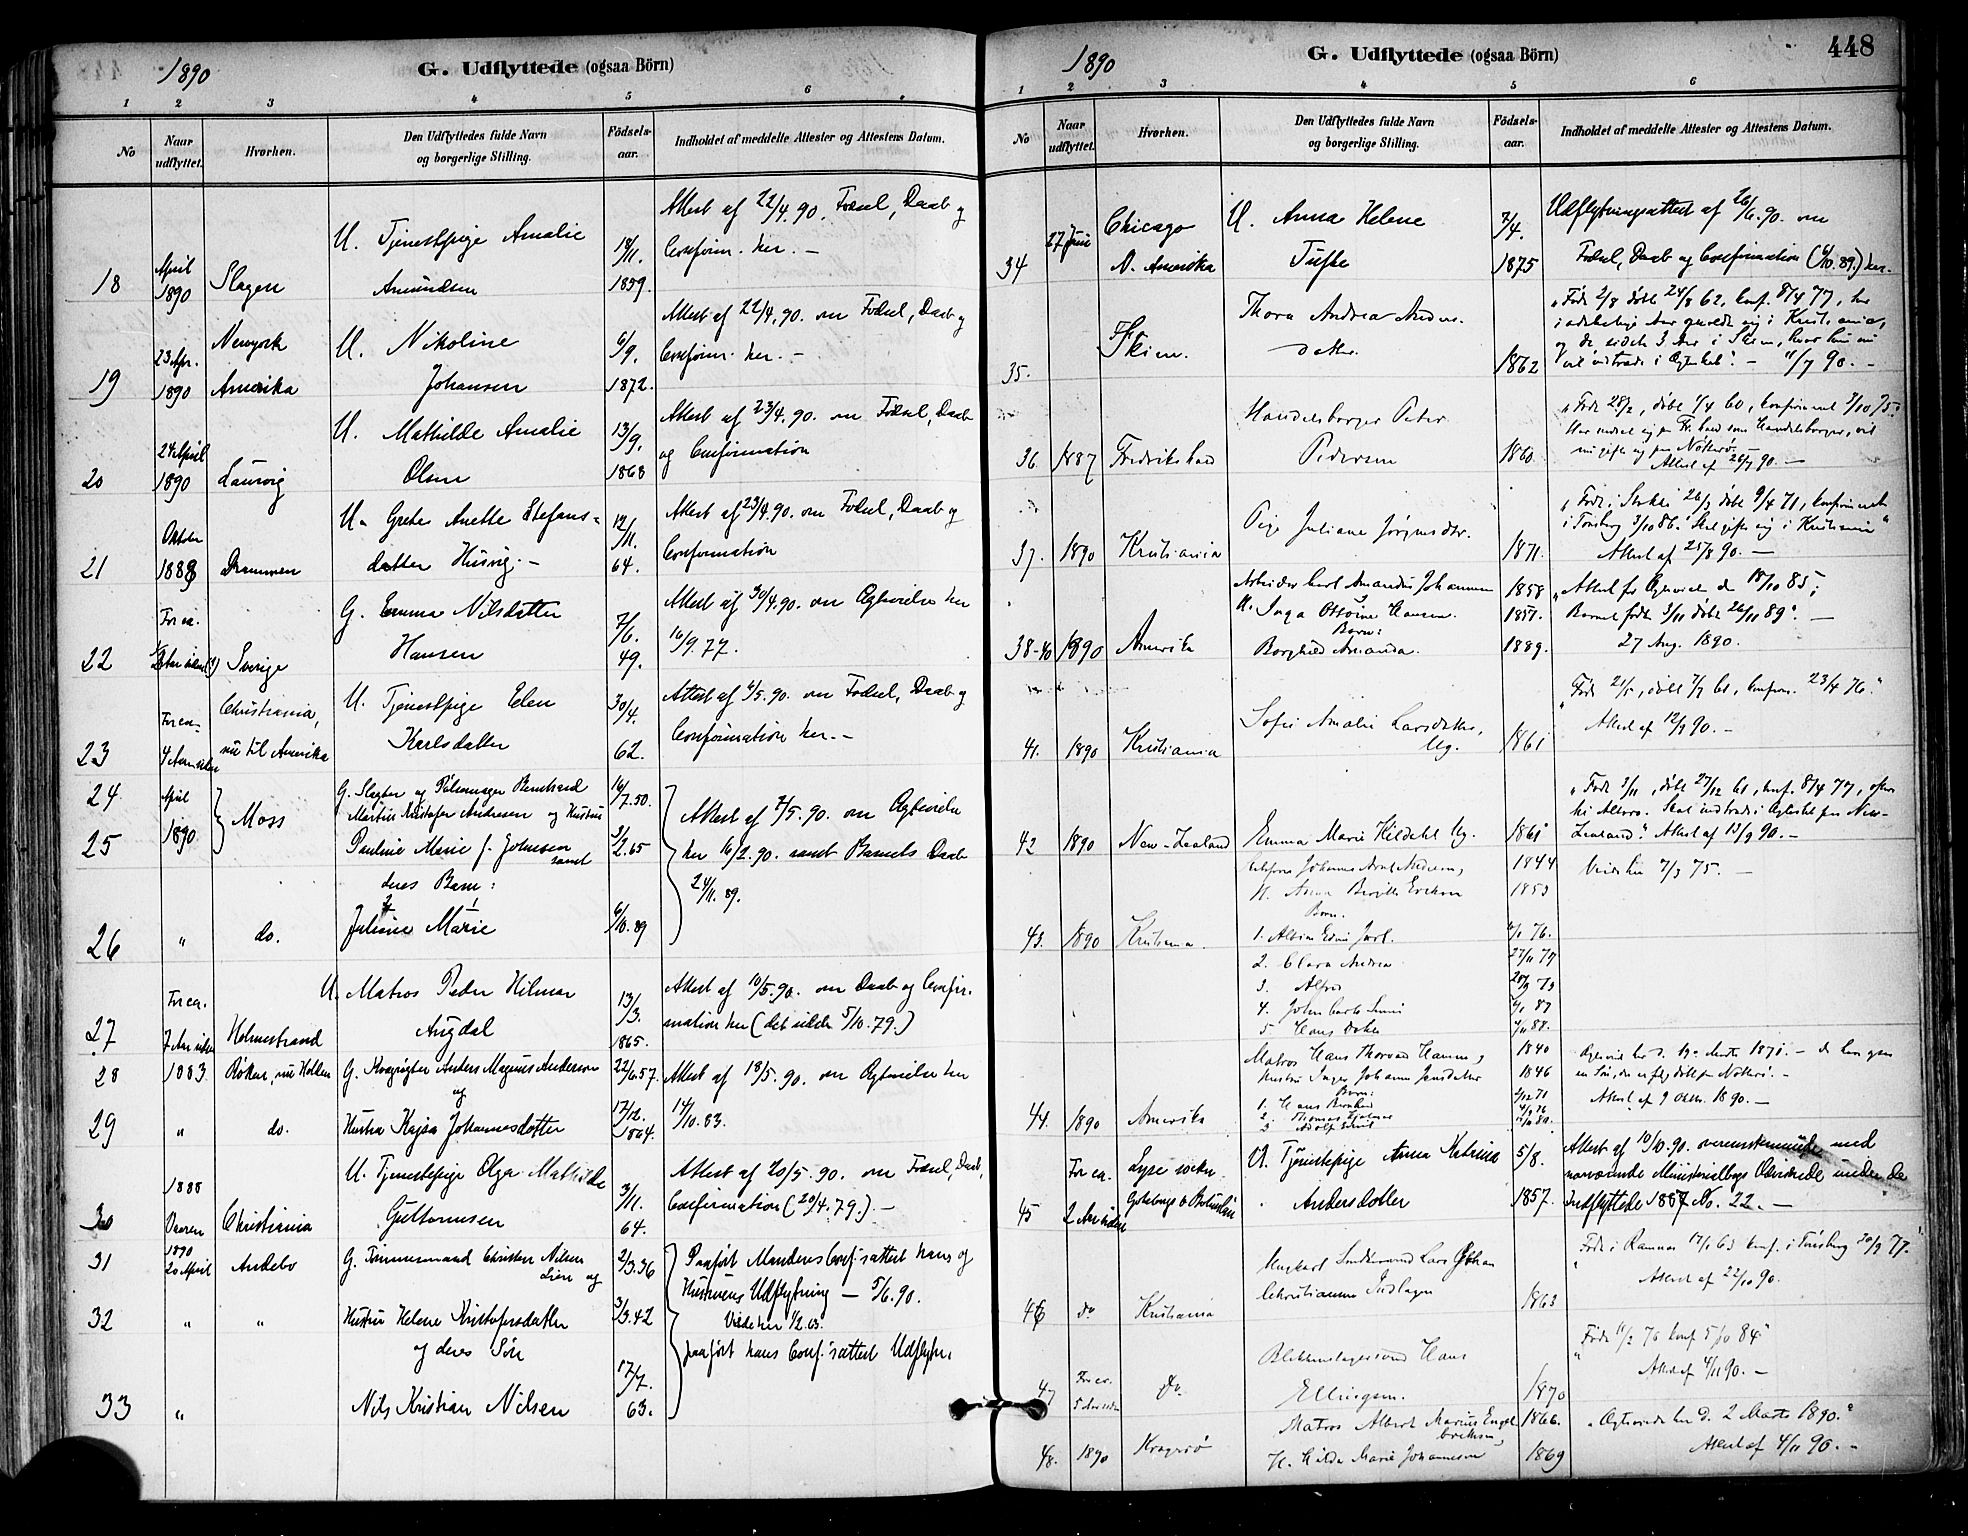 1890
G. Udflyttede (ogsaa Börn)
1 2 3 4 5 6
No
Naar udflyttet.
Hvorhen.
Den Udflyttedes fulde Navn og borgerlige Stilling.
Födselsaar.
Indholdet af meddelte Attester og Attestens Datum.
18 April 1890 Slagen
U. Tjenestpige Amalie
Amundsen
18/11. 1859.
Attest af 22/4.90. Fødsel, Daab og
Confirm. her. –
19 23 Apr. 1890 Newyork Amerika
U. Nikoline
Johansen
6/9. 1872.
Attest af 22/4.90. om Fødsel, Daab og
Confirm. her. –
20 24 April 1890 Laurvig
U. Mathilde Amalie
Olsen
13/9. 1868
Attest af 23/4.90. om Fødsel, Daab
og Confirmation
21 Oktober 1888 Drammen
U. Grete Anette Stefans-
datter Husvig. –
12/11. 64.
Attest af 23/4.90. om Fødsel, Daab og
Confirmation
22 For ca. Sverige
G. Emma Nilsdatter
Hansen
7/6. 49.
Attest af 30/4.90. om Ægtevielse her
16/9.77.
23 For ca. 4 Aar siden Christiania, nu til Amerika
U. Tjenestpige Elen
Karlsdatter
30/4. 62.
Attest af 6/5.90. om Fødsel, Daab og
Confirmation her. –
24 April 1890 Moss
G. Slagter og Pølsemager Bernhard
Martin Kristofer Andresen og Hustru
16/7.50.
25
Pauline Marie f. Johnsen samt
deres Barn:
3/2.65
Attest af 7/5.90. om Ægtevielse
her 16/2.90. samt Barnets Daab
24/11.89.
26 " do.
Juline Marie
6/10.89
27 For ca. 7 Aar siden Holmestrand
U. Matros Peder Hilmar
Augdal
13/3. 1865.
Attest af 10/5.90. om Daab og Confir-
mation her (det sidste 5/10.79.)
28 1883 Røken, nu Hollen
G. Anders Magnus Anderson
og
22/6.57.
Attest af 18/5.90. om Ægtevielse her
14/10.83.
29 " do.
Hustru Kajsa Johannesdatter
17/12. 1864.
30 1888 Vaaren Christiania
U. Tjenestepige Olga Mathilde
Guttormsen
3/11. 64.
Attest af 20/5.90. om Fødsel, Daab,
Confirmation (20/4.79.). –
31 1890 20 April Andebo
G. Tømmermand Christen Nilsen
Lien og
2/3.36
Paaført Mandens Conf.sattest hans og
Hustruens Udflytning – 5/6.90.
32 " "
Hustru Helene Kristofersdatter
og deres Søn
3/3.42
Viede her 1/2.63.
paaført hans Conf.sattest Udflytn.
33 "
Nils Kristian Nilsen
17/7. 63.
1890
G. Udflyttede (ogsaa Börn)
448
1 2 3 4 5 6
No
Naar udflyttet.
Hvorhen.
Den Udflyttedes fulde Navn og borgerlige Stilling.
Födselsaar.
Indholdet af meddelte Attester og Attestens Datum.
34 27 Juni Chicago N. Amerika
U. Anna Helene
Tufte
7/4. 1875
Udflytningsattest af 26/6.90. om
Fødsel, Daab og Confirmation (6/10.89.) her.
35. Skien.
Thora Andrea Anders-
datter.
1862
"Født 2/8 døbt 24/8 62, konf. 8/4 77, har
i adskillige Aar opholdt sig i Kristiania,
og de sidste 3 Aar i Skien, hvor hun nu
vil indtræde i Ægteskab". – 11/7 90. –
36. 1887 Fredrikshald
Handelsborger Peter
Pedersen
1860.
"Født 28/2, døbt 9/4 60, konfirmeret 3/10 75."
Har nedsat sig paa Fr.hald som Handelsborger, vil
nu gifte sig paa Nøtterø.
Attest af 26/7 90. –
37. 1890 Kristiania
Pige Juliane Jørgensdtr.
1871.
"Født i Stokke 26/3 døbt 9/4 71, konfirmeret
i Tønsberg 3/10 86. Skal gifte sig i Kristiania"
Attest af 25/8 90. –
38-40 1890 Amerika
Arbeider Carl Amandus Johannesen 1858
H. Inga Othine Hansen. 1857.
Barn:
Borghild Amanda. 1889.
"Attest for Ægteviet d. 18/10 85;
Barnet født 3/11 døbt 26/11 89". –
27 Aug. 1890.
41. 1890 Kristiania
Sofie Amalie Larsdatter,
Ug.
1861
"Født 21/5, døbt 7/7 61, konfirm. 23/4 76."
Attest af 12/9 90. –
42 1890 New-Zealand
Emma Marie Kildahl Ug.
1861
"Født 3/11, døbt 27/12 61, konf. 8/4 77,
Skal indtræde i Ægteskab paa New-
Zealand." Attest af 13/9 90. –
43. 1890 Kristiania.
1844
H. Anna Birgitte Eriksen 1853
Viede her 7/3 75. –
Børn.
1. Albin Edvin Jarl. 76.
2. Clara Andrea 27/11 77
3. Alfred
4. John Carl
5. Hans Oskar
44. 1890 Amerika
Matros Hans Thorvald Hansen, 1840
Hustru Inger Johanne Jensdatter 1846
Børn:
1. Hans Bernhard
2. Thomas Hjalmar
3. Adolf
Attest af 9 Oktbr. 1890. –
45 For ca. 2 Aar siden Lyse sokn Göteborgs & Bohuslän
U. Tjenestepige Anna Katrina
Andersdotter
5/8. 1857.
Attest af 10/10.90. overensstemmende med
nærværende Ministerialbogs Oversigt under de
Indflyttede 1887 No. 22. –
46 do Kristiania
Ungkarl Lars Johan
Christiansen
1863
"Født i Ramnes 17/1 63 konf. i Tønsberg 30/9 77."
Attest af 22/10 90.
47 For ca. 5 Aar siden Do.
Blikkenslagersvend Hans
Ellingsen.
1870
"Født 11/2 70 konf 5/10 84"
Attest af 4/11 90. –
48. 1890 Kragerø
Matros Albert Marius Engel-
brektsen, 1866.
H. Hilda Marie Johannesen 1869
"Ægteviede her d. 2 Marts 1890."
Attest af 4/11 90. –